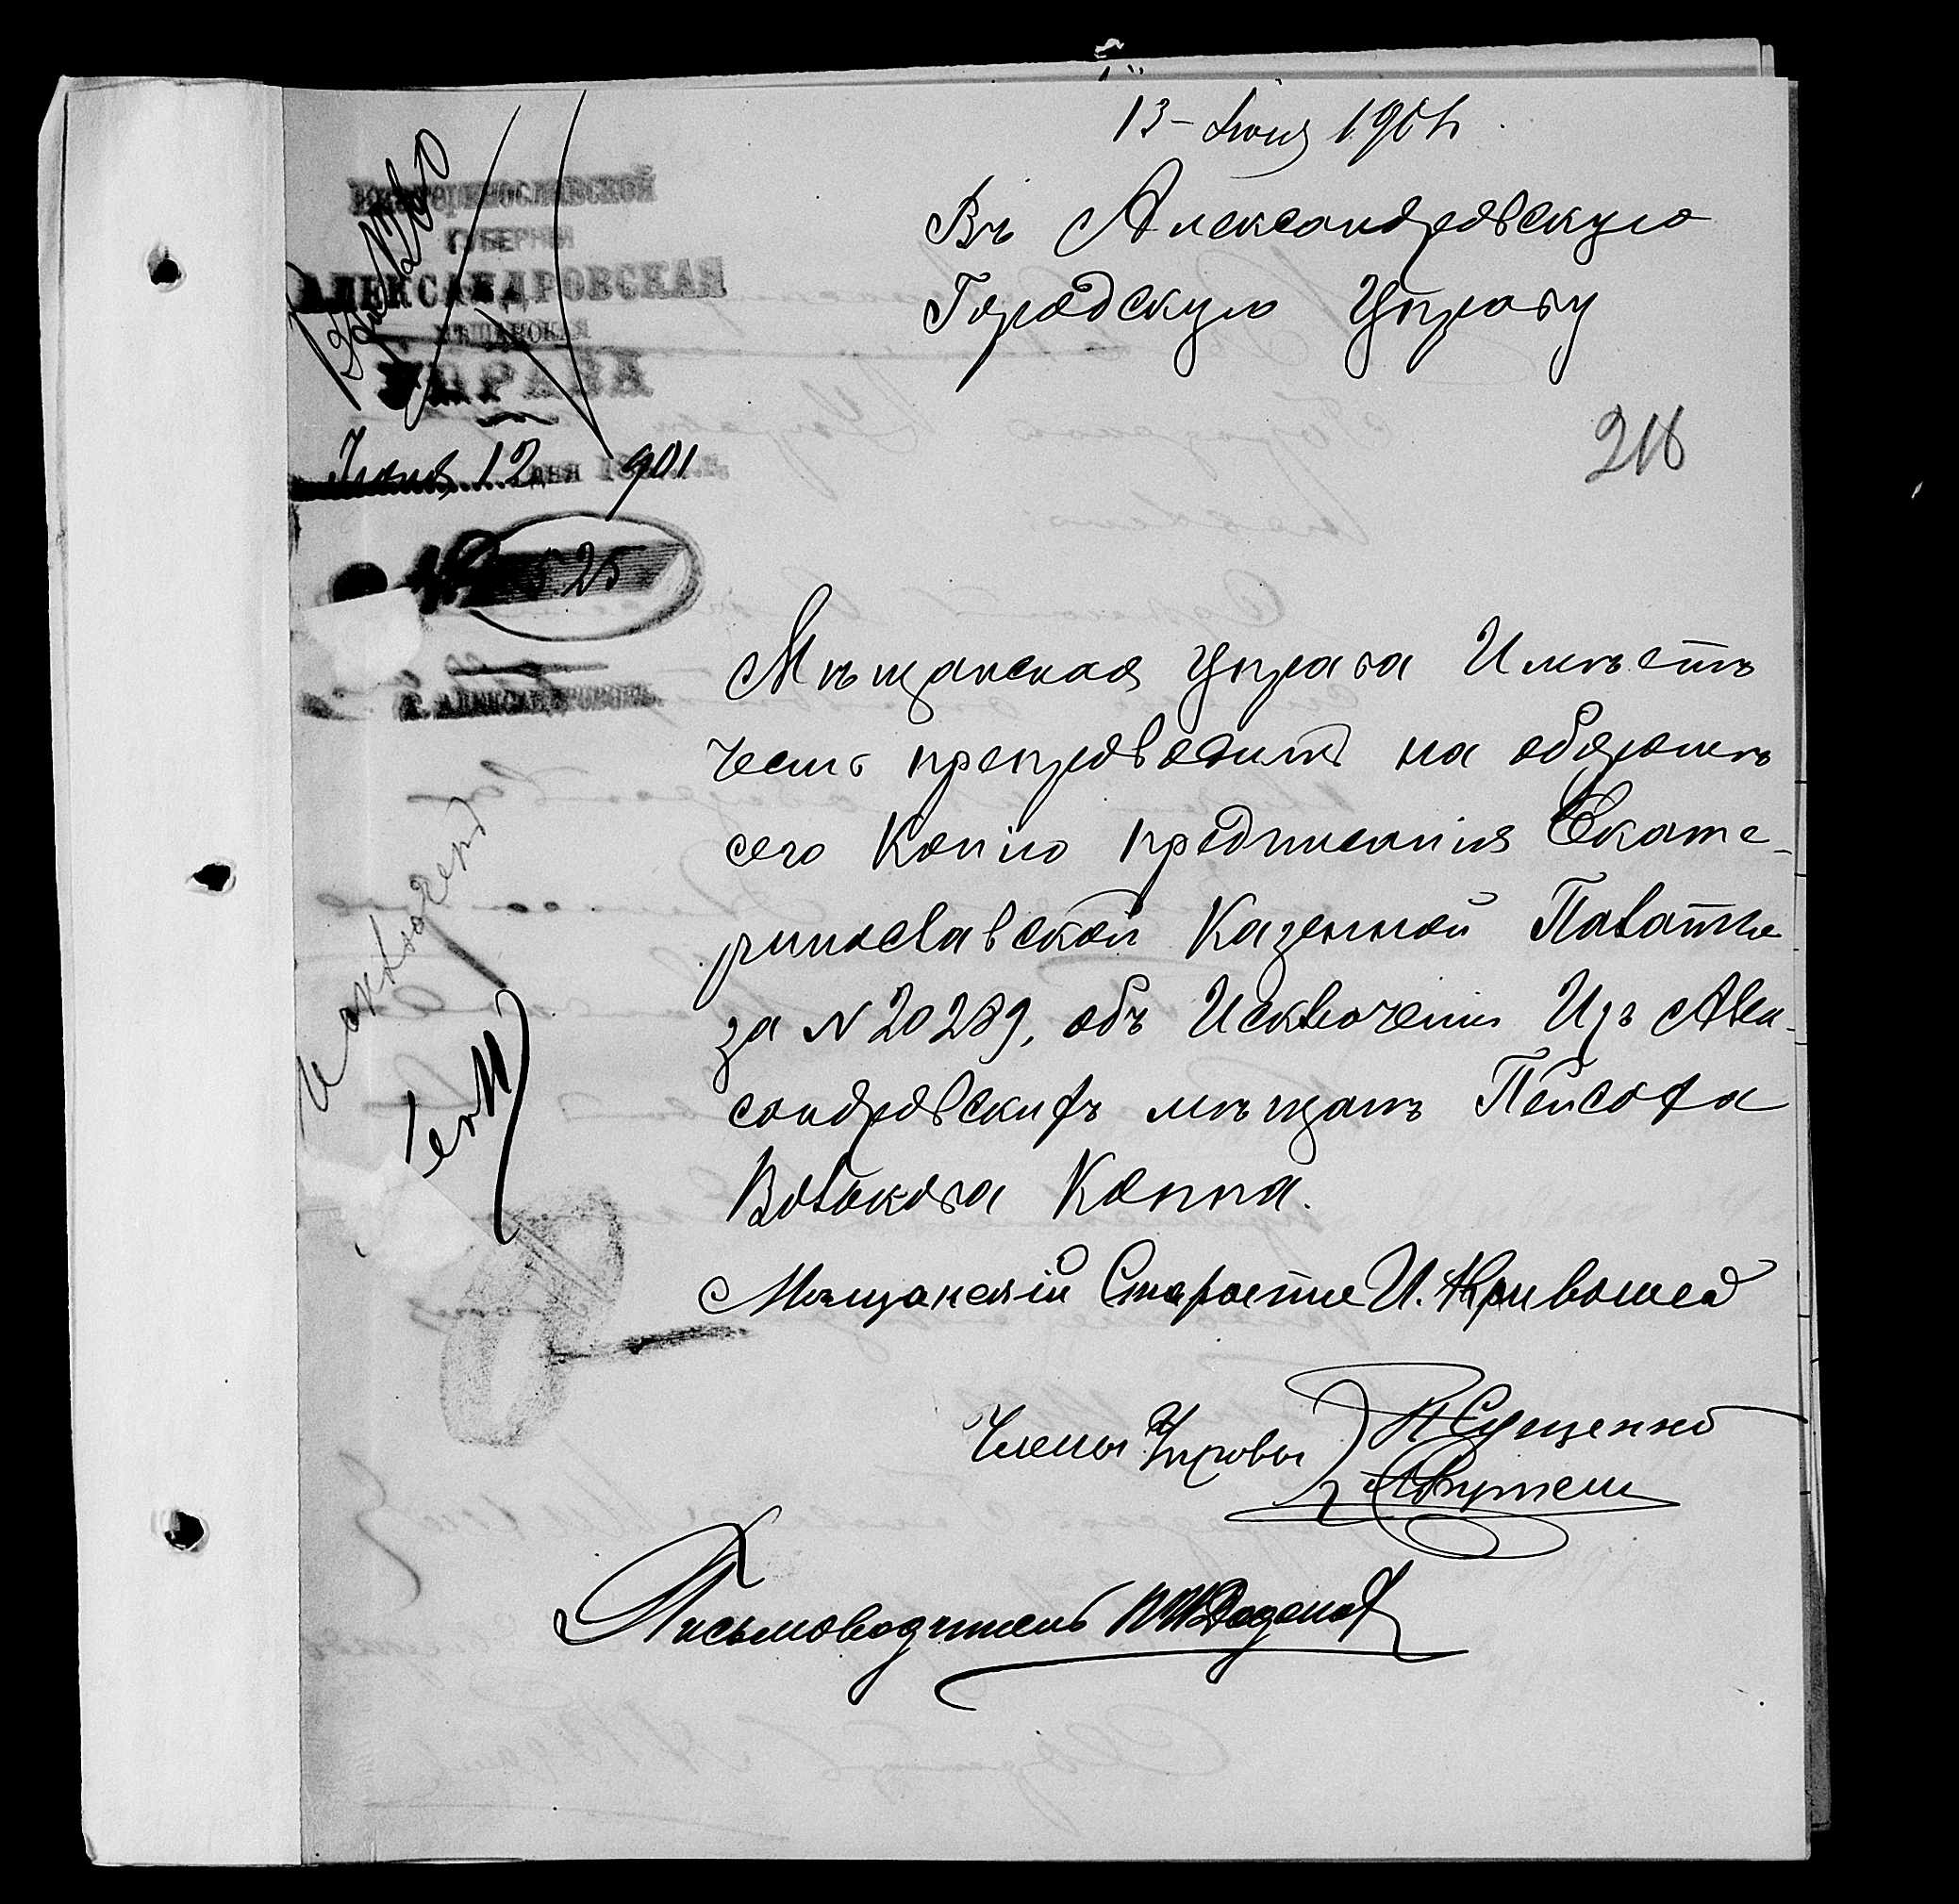 13 Июня 1901
Въ Александровскую
Городскую Управу
ЕКАТЕРИНОСЛАВСКОЙ
ГУБЕРНІИ
АЛЕКСАНДРОВСКАЯ
МѢЩАНСКАЯ
УПРАВА
Июня 12 дня 1901 г.
№ 525
Г. АЛЕКСАНДРОВСКЪ.
218
Мѣщанская Управа Имѣетъ
честь препроводить на оборотѣ
сего Копію предписанія Екате-
ринославской Казенной Палаты
за № 20289, объ Исключеніи Изъ Алек-
сандровскихъ мѣщанъ Пейсаха
Волькова Коппа.
Исключенъ
Мѣщанскій Староста И. Кривошея
Члены Управы
П Сущенко
Письмоводитель